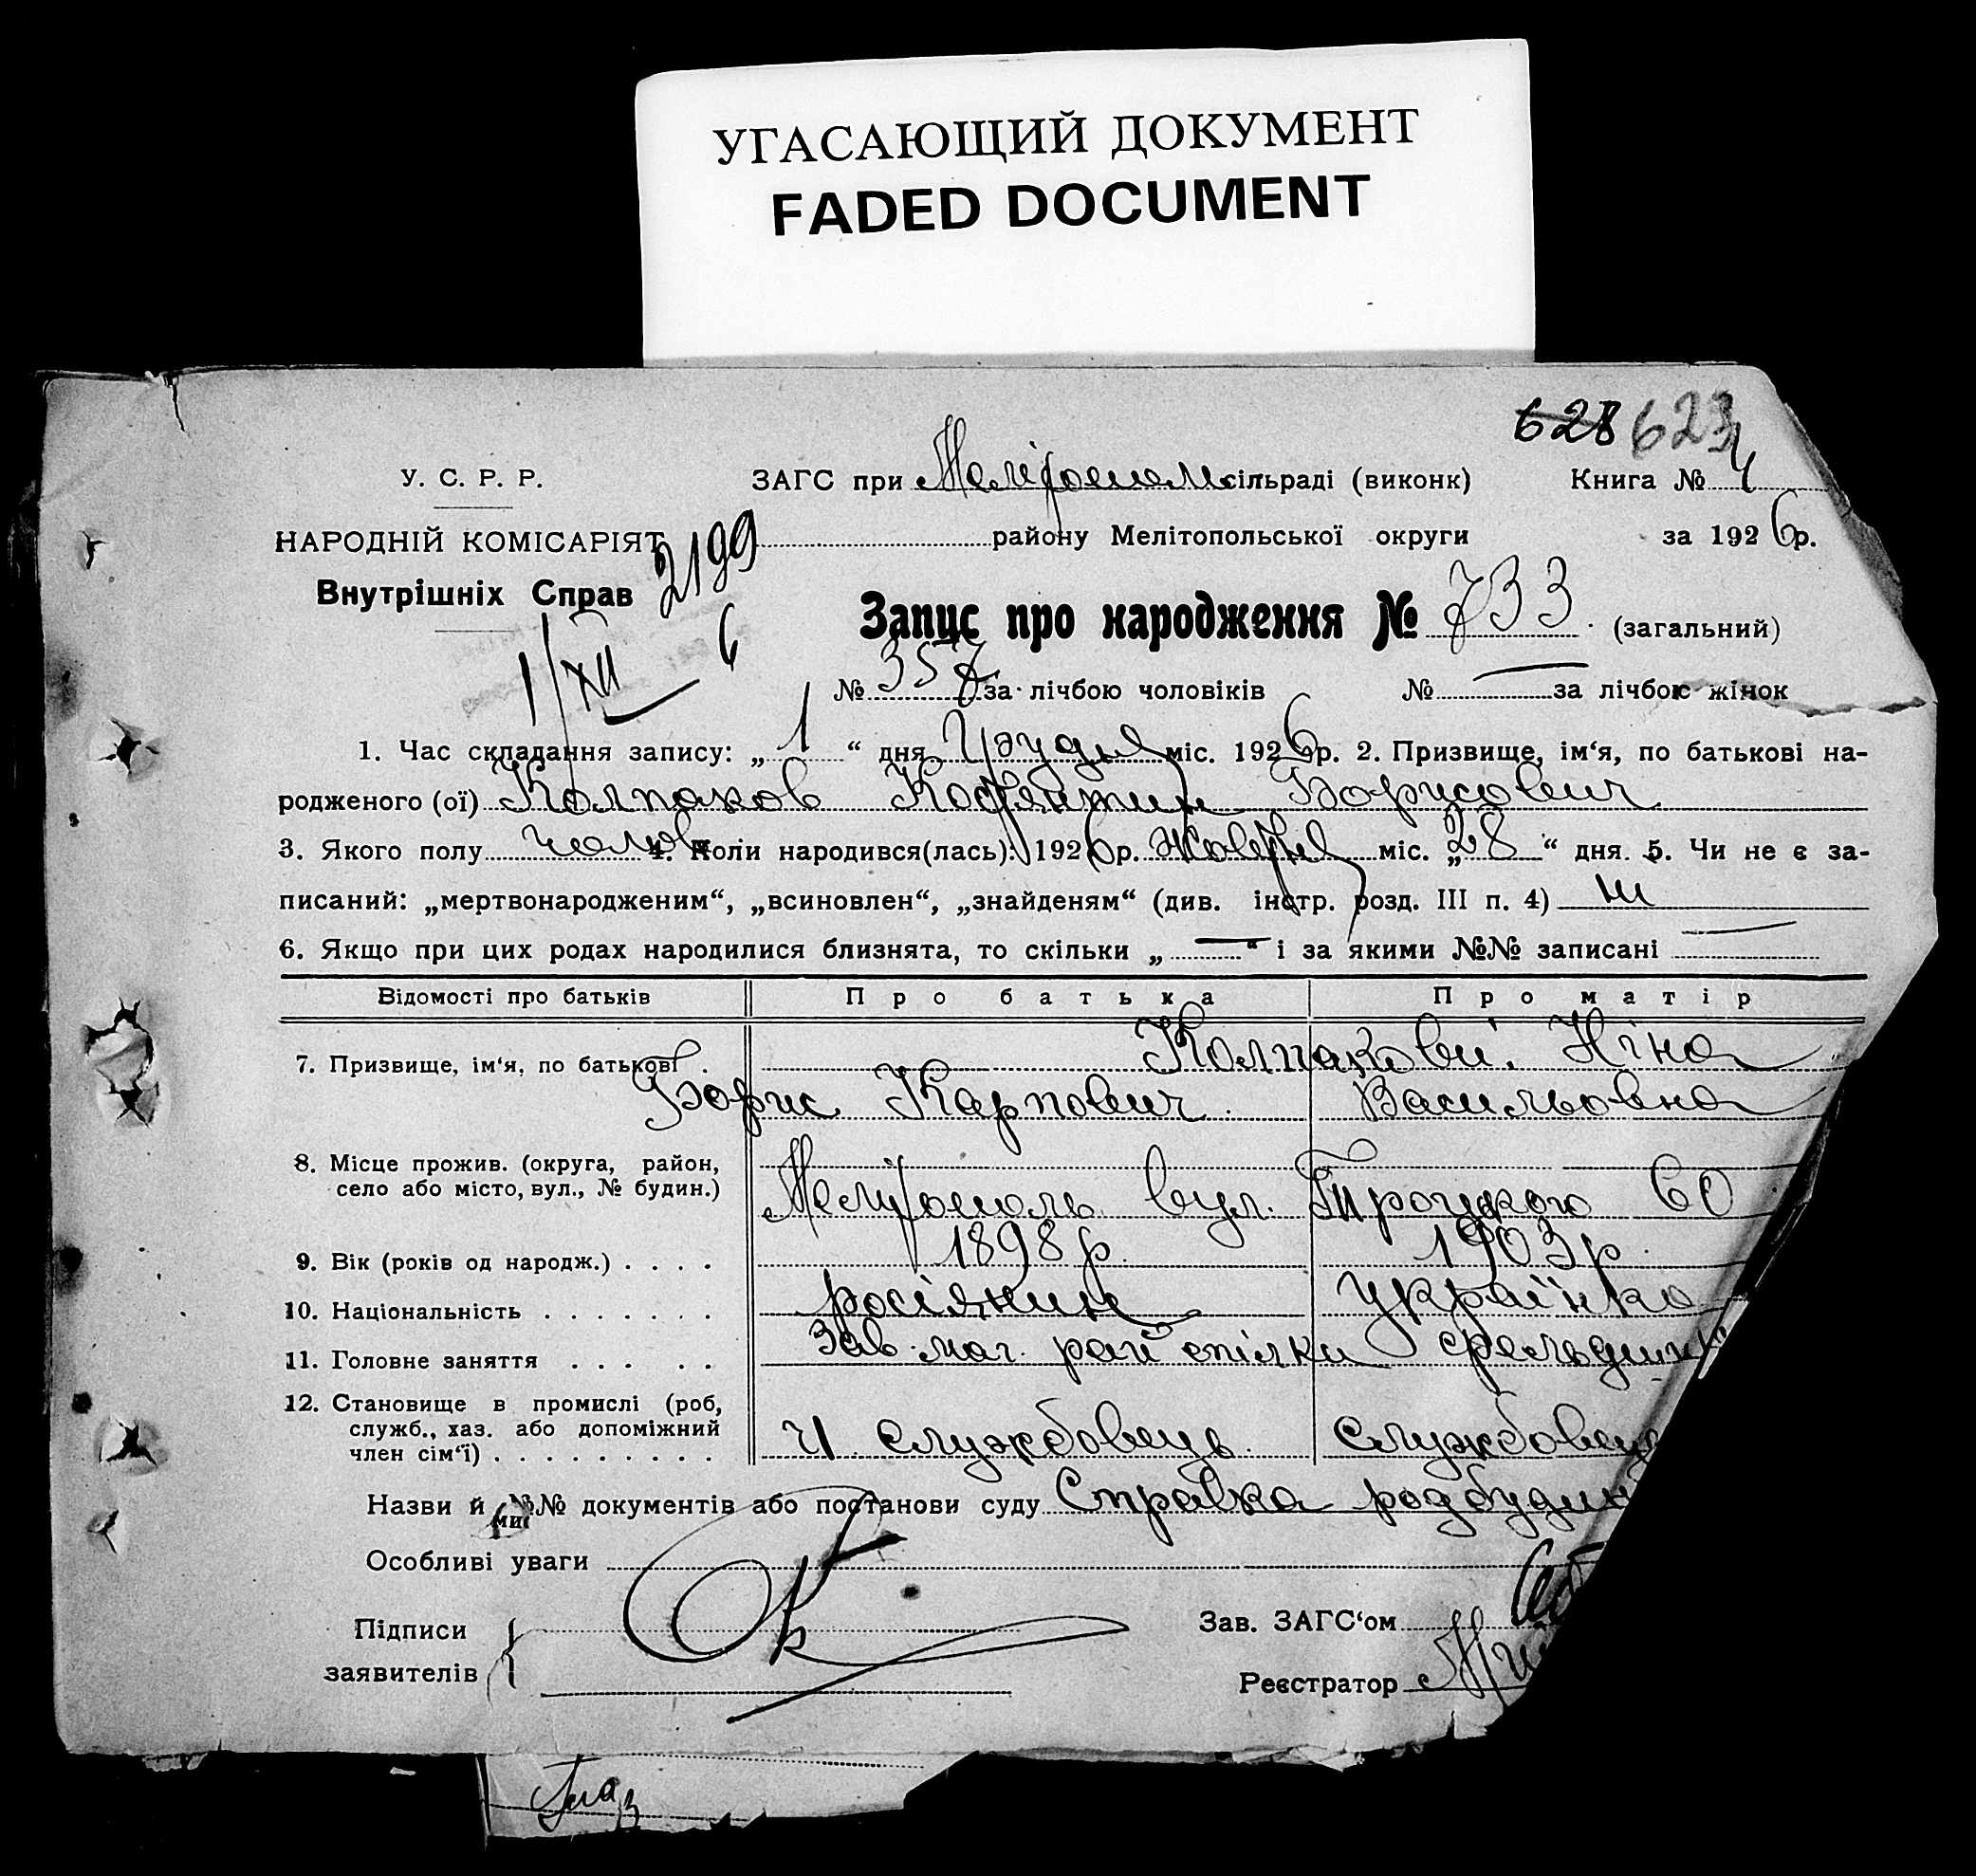 УГАСАЮЩИЙ ДОКУМЕНТ
FADED DOCUMENT
628 623
У. С. Р. Р. ЗАГС при Мелітопольс сільраді (виконк) Книга № 4
НАРОДНІЙ КОМІСАРІЯТ района Мелітопольської округи за 1926 р.
2199
Внутрішніх Справ
Запис про народження № 733 (загальний)
1/XII 6
№ 357 за лічбою чоловіків № — за лічбою жінок
1. Час складання запису: „1“ дня Грудня міс. 1926 р. 2. Призвище, ім‘я, по батькові на-
родженого (ої) Колпаков Костянтин Борисович
3. Якого полу чолов 4. Коли народився(лась): 1926 р. жовтня міс. „28“ дня. 5. Чи не є за-
писаний: „мертвонародженим“, „всиновлен“, „знайденям“ (див. інстр. розд. III п. 4) ні
6. Якщо при цих родах народилися близнята, то скільки „—“ і за якими №№ записані —
Відомості про батьків Про батька Про матір
7. Призвище, ім‘я, по батькові . Колпакови. Ніна
Борис Карпович. Васильовна
8. Місце прожив. (округа, район,
село або місто, вул., № будин.) Мелітополь вул. Троцького 60
9. Вік (років од народж.) . . . . 1898 р. 1903 р.
10. Національність . . . . . . . росіянин українка
11. Головне заняття . . . . . Зав. маг. райспілки фельдш
12. Становище в промислі (роб,
служб., хаз. або допоміжний
член сім‘ї) . . . . . . . . . службовець службовець
Назви й №№ документів або постанови суду Справка родбудин
Особливі уваги
Підписи Зав. ЗАГС‘ом
заявителів
Реєстратор